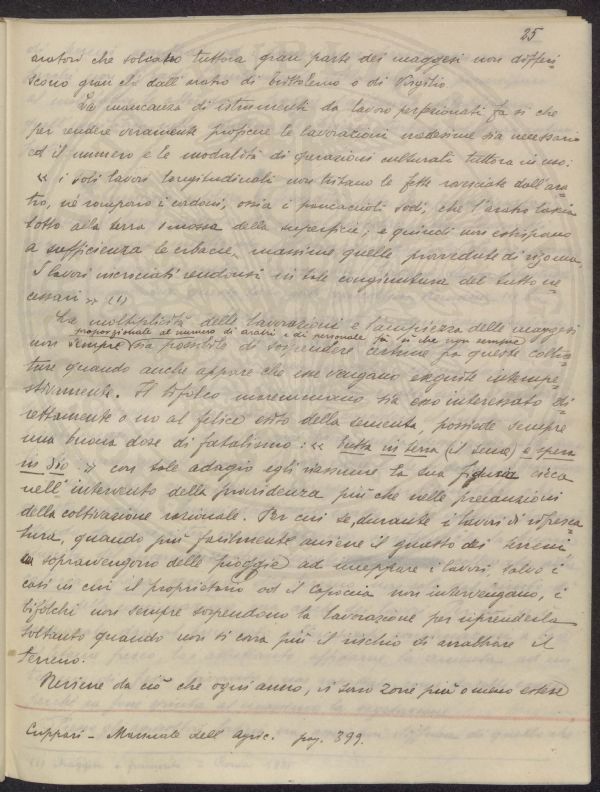 25
aratori che solcano tuttora gran parte dei maggesi non differi-
scono gran chè dall'aratro di Trittolemo o di Virgilio
La mancanza di istrumenti da lavoro perfezionati fa si che
per rendere veramente proficue le lavorazioni medesime sia necessario
ed il numero e le modalità di operazioni culturali tuttora in uso:
« i soli lavori longitudinali non tritano le fette rovesciate dall'ara-
tro, nè rompono i cordoni, ossia i pancaccioli sodi, che l'aratro lascia
sotto alla terra smossa della superficie; e quindi non estirpano
a sufficienza le erbacce, massime quelle provvedute di rizoma.
I lavori incrociati rendonsi in tale congiuntura del tutto ne-
cessari » (1)
La moltiplicità delle lavorazioni e l'ampiezza delle maggesi
proporzionale al numero di aratri e di personale fa si che non sempre
non sempre sia possibile di sospendere certune fra queste coltiva-
ture quando anche appare che esse vengano eseguite intempe-
stivamente. Il bifolco maremmano sia esso interessato di-
rettamente o no al felice esito della sementa, possiede sempre
una buona dose di fatalismo: « butta in terra (il seme) e spera
in Dio » con tale adagio egli riassume la sua fiducia circa
nell'intervento della provvidenza più che nelle precauzioni
della coltivazione razionale. Per cui se, durante i lavori di rifresca-
tura, quando più facilmente avviene il guasto dei terreni
sopravvengono delle pioggie ad inceppare i lavori, salvo i
casi in cui il proprietario od il Capoccia non intervengano, i
bifolchi non sempre sospendono la lavorazione per riprenderla
soltanto quando non si corra più il rischio di arrabbiare il
terreno.
Neviene da ciò che ogni anno, vi sono zone più o meno estese
Cuppari - Manuale dell'Agric. pag. 399.